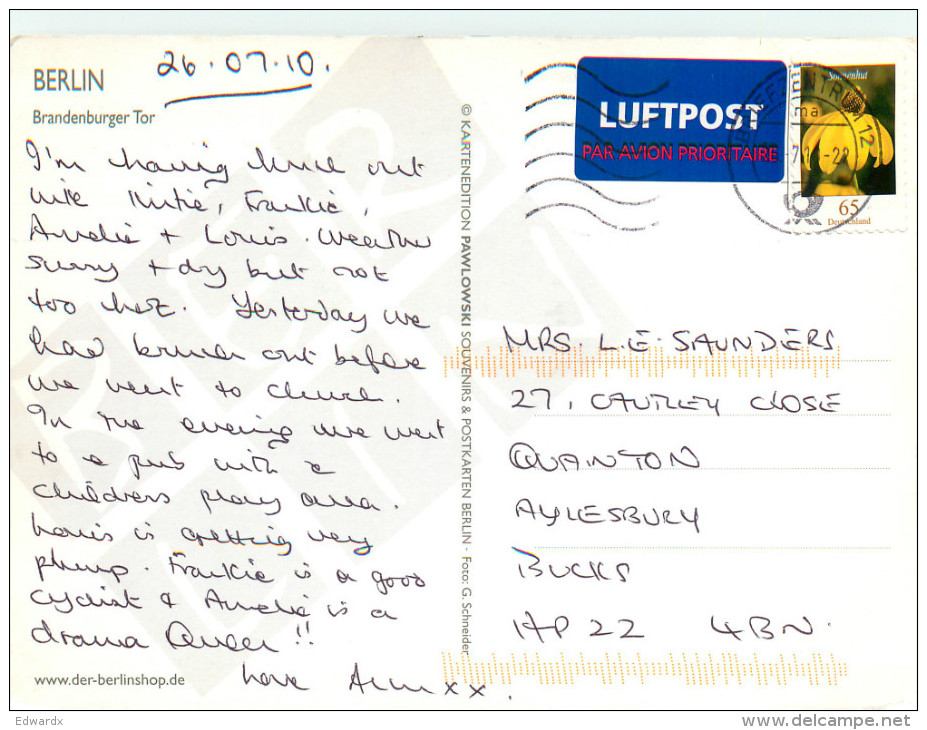 BERLIN
Brandenburger Tor
26.07.10.
I'm having lunch out
with Kirstie, Frankie,
Amelie + Louis. Weather
sunny + dry but not
too hot. Yesterday we
had brunch out before
we went to church.
In the evening we went
to a pub with a
childrens play area.
Louis is getting very
plump. Frankie is a good
cyclist & Amelie is a
drama Queen!!
Love Ann xx.
www.der-berlinshop.de
© KARTENEDITION PAWLOWSKI SOUVENIRS & POSTKARTEN BERLIN - Foto: G. Schneider
LUFTPOST
PAR AVION PRIORITAIRE
BRIEFZENTRUM 12
Sonnenhut
65
Deutschland
MRS. L.E. SAUNDERS
27, CAUTLEY CLOSE
QUAINTON
AYLESBURY
BUCKS
HP22 4BN.
Edwardx
delcampe.net